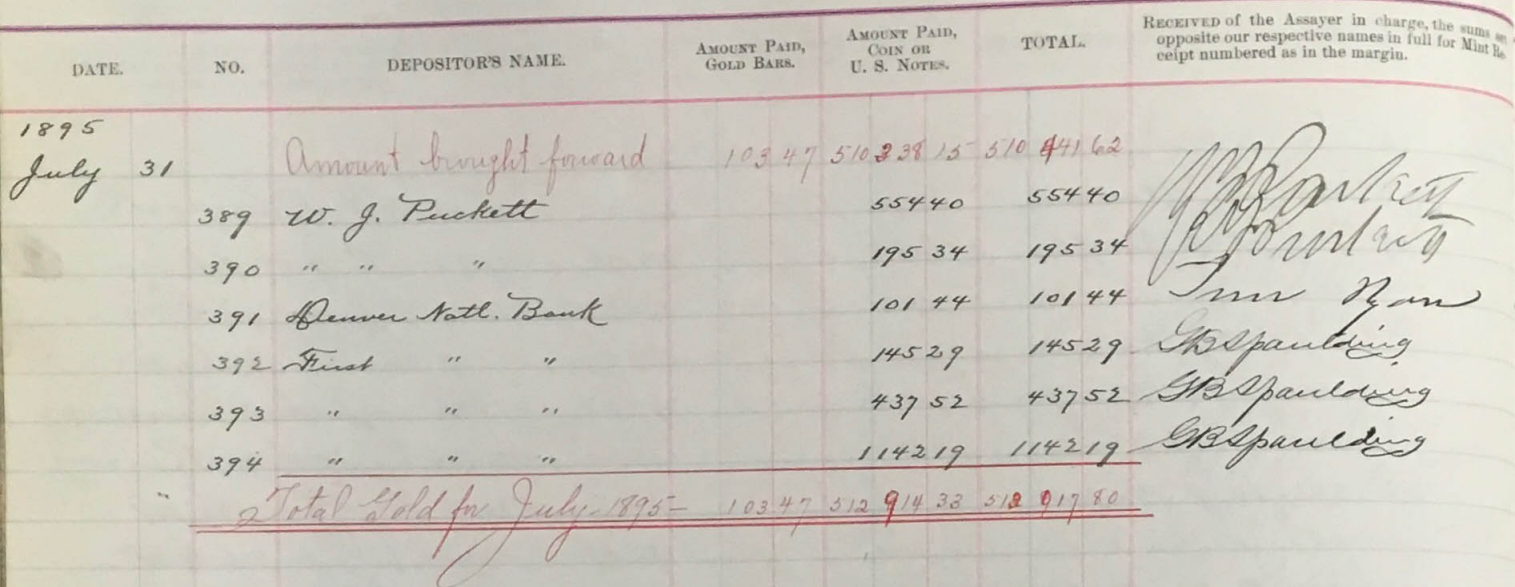 DATE. NO. DEPOSITOR'S NAME. AMOUNT PAID, GOLD BARS. AMOUNT PAID, COIN OR U. S. NOTES. TOTAL. RECEIVED of the Assayer in charge, the sums
opposite our respective names in full for Mint Re
ceipt numbered as in the margin.
1895
July 31 Amount brought forward 103 47 510 338 15 510 441 62
389 W. J. Puckett 554 40 554 40
390 " " " 195 34 195 34
391 Denver Natl. Bank 101 44 101 44 Ryan
392 First " " 145 29 145 29 GB Spaulding
393 " " " 437 52 437 52 GB Spaulding
394 " " " 1142 19 1142 19 GB Spaulding
" Total Gold for July 1895 103 47 512 914 33 513 017 80